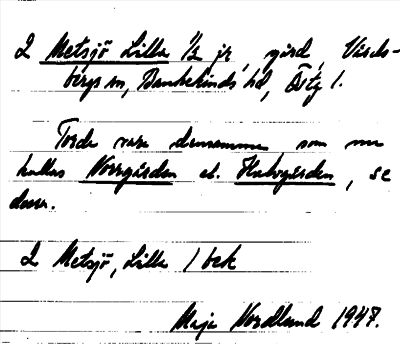 2 Metsjö Lilla 1/2 jr, gård, Vårds-
bergs sn, Bankekinds hd, Östg l.
Torde vara densamma som nu
kallas Norrgården el. Halvgården, se
dessa.
2 Metsjö, Lilla 1 bek
Maja Nordlund 1948.